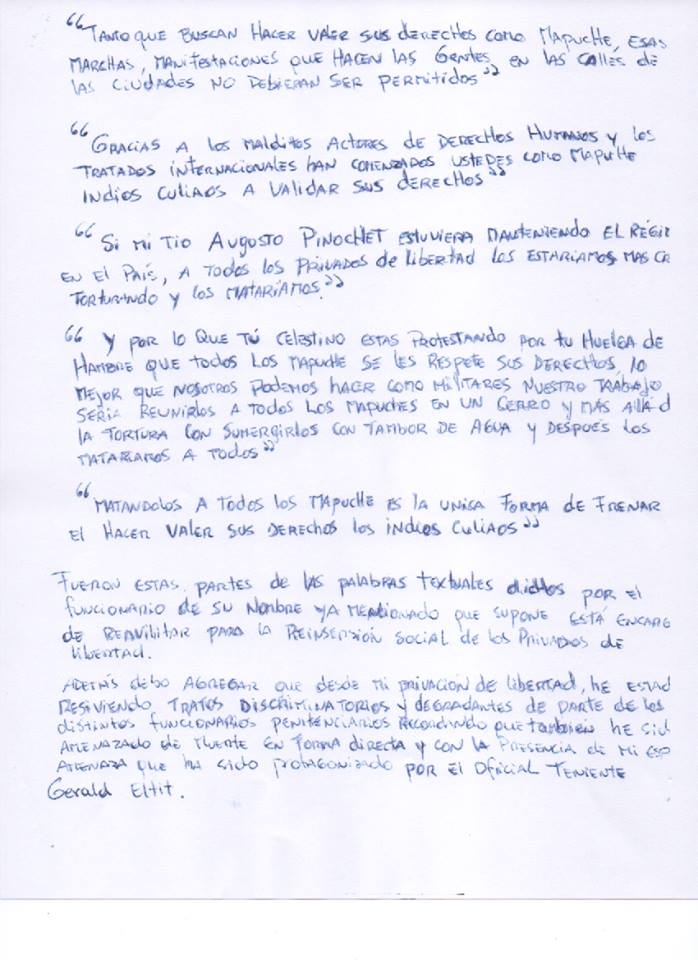 “Tanto que buscan hacer valer sus derechos como Mapuche, esas
marchas, manifestaciones que hacen las gentes, en las calles de
las ciudades no debieran ser permitidos”
“Gracias a los malditos actores de derechos humanos y los
tratados internacionales han comenzados ustedes como Mapuche
indios culiaos a validar sus derechos”
“Si mi tio Augusto Pinochet estuviera manteniendo el régi
en el país, a todos los privados de libertad los estaríamos mas
torturando y los mataríamos.”
“Y por lo que tú Celestino estas protestando por tu huelga de
hambre que todos los Mapuche se les respete sus derechos, lo
mejor que nosotros podemos hacer como militares nuestro trabajo
seria reunirlos a todos los mapuches en un cerro y más allá d
la tortura con sumergirlos con tambor de agua y después los
matariamos a todos”
“Matandolos a todos los Mapuche es la unisa forma de frenar
el hacer valer sus derechos los indios culiaos”
Fueron estas, partes de las palabras textuales dichos por el
funcionario de su nombre ya mencionado que supone está encarg
de reavilitar para la reinserción social de los privados de
libertad.
Además debo agregar que desde mi privación de libertad, he estad
resiviendo tratos discriminatorios y degradantes de parte de los
distintos funcionarios penitenciarios recordando que tambien he sid
amenazado de muerte en forma directa y con la presencia de mi esp
amenaza que ha sido protagonizado por el Oficial Teniente
Gerald Eltit.